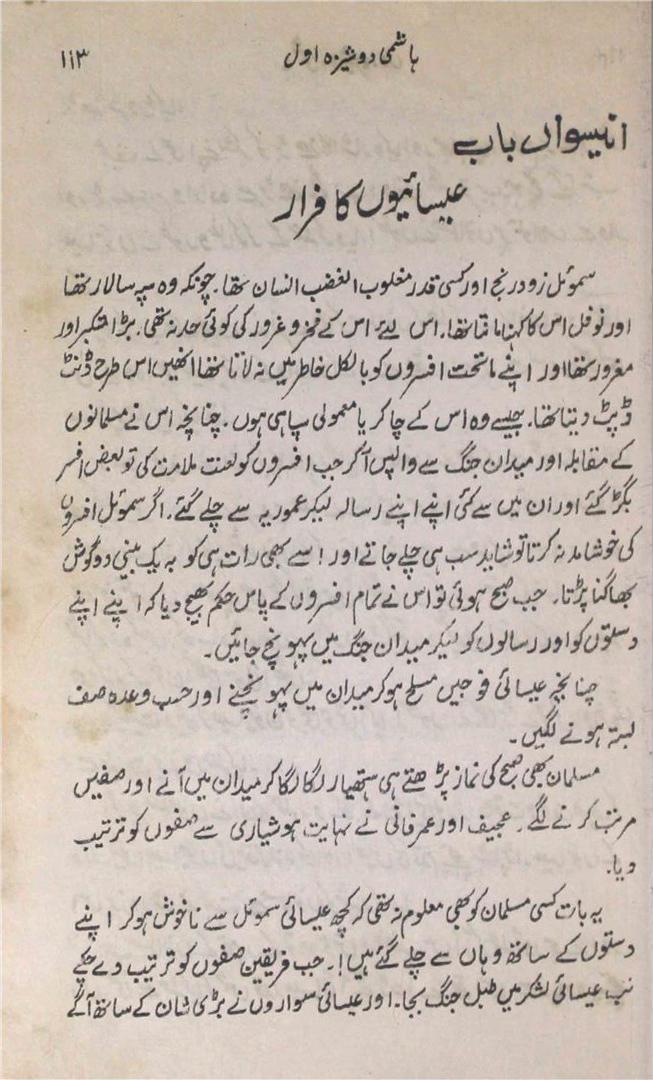 ہاشمی دوشیزہ اول ۱۱۳
انیسواں باب
عیسائیوں کا فرار
سموئل زود رنج اور کسی قدر مغلوب الغضب انسان تھا۔ چونکہ وہ سپہ سالار تھا
اور نوفل اس کا کہنا مانتا تھا۔ اس لئے اس کے فخر و غرور کی کوئی حد نہ تھی۔ بڑا متکبر اور
مغرور تھا اور اپنے ماتحت افسروں کو بالکل خاطر میں نہ لاتا تھا انھیں اس طرح ڈنٹ
ڈپٹ دیتا تھا۔ جیسے وہ اس کے چاکر یا معمولی سپاہی ہوں۔ چنانچہ اس نے مسلمانوں
کے مقابلہ اور میدان جنگ سے واپس آکر جب افسروں کو لعنت ملامت کی تو بعض افسر
بگڑ گئے اور ان میں سے کئی اپنے اپنے رسالہ لیکر عموریہ سے چلے گئے۔ اگر سموئل افسروں
کی خوشامد نہ کرتا تو شاید سب ہی چلے جاتے اور اسے بھی رات ہی کو بہ یک بینی دو گوش
بھاگنا پڑتا۔ جب صبح ہوئی تو اس نے تمام افسروں کے پاس حکم بھیج دیا کہ اپنے اپنے
دستوں کو اور رسالوں کو لیکر میدان جنگ میں پہونچ جائیں۔
چنانچہ عیسائی فوجیں مسلح ہو کر میدان میں پہونچنے اور حسب وعدہ صف
بستہ ہونے لگیں۔
مسلمان بھی صبح کی نماز پڑھتے ہی ہتھیار لگا لگا کر میدان میں آنے اور صفیں
مرتب کرنے لگے۔ عجیف اور عمر فانی نے نہایت ہوشیاری سے صفوں کو ترتیب
دیا۔
یہ بات کسی مسلمان کو بھی معلوم نہ تھی کہ کچھ عیسائی سموئل سے ناخوش ہو کر اپنے
دستوں کے ساتھ وہاں سے چلے گئے ہیں!۔ جب فریقین صفوں کو ترتیب دے چکے
تب عیسائی لشکر میں طبل جنگ بجا۔ اور عیسائی سواروں نے بڑی شان کے ساتھ آگے